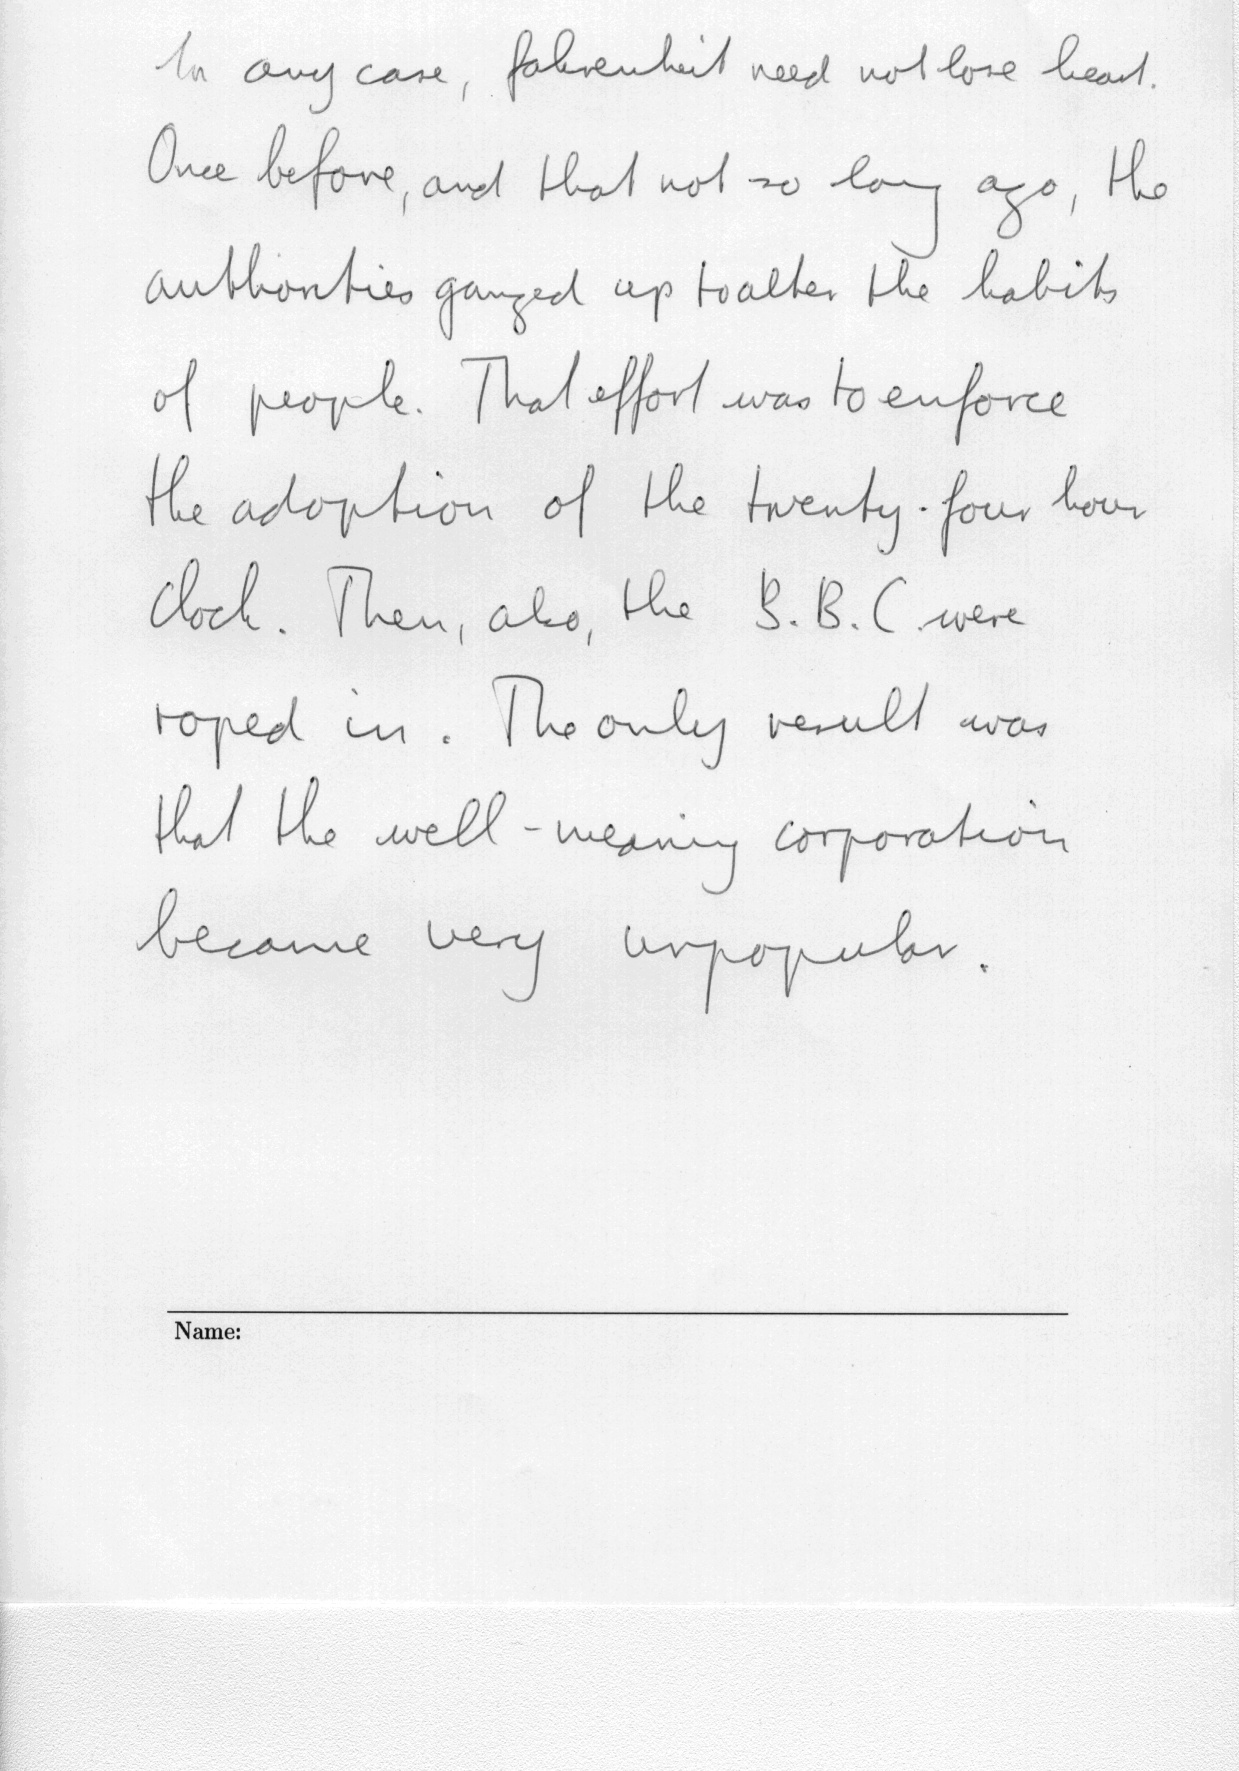 In any case, fahrenheit need not lose heart.
Once before, and that not so long ago, the
authorities ganged up to alter the habits
of people. That effort was to enforce
the adoption of the twenty-four hour
clock. Then, also, the B.B.C. were
roped in. The only result was
that the well-meaning corporation
became very unpopular.
Name: